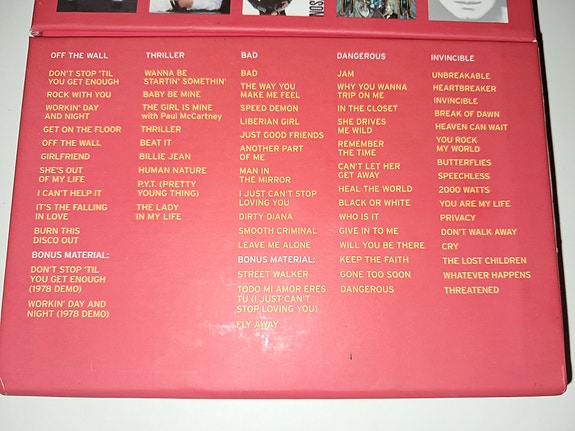 SON
OFF THE WALL
DON'T STOP 'TIL
YOU GET ENOUGH
ROCK WITH YOU
WORKIN' DAY
AND NIGHT
GET ON THE FLOOR
OFF THE WALL
GIRLFRIEND
SHE'S OUT
OF MY LIFE
I CAN'T HELP IT
IT'S THE FALLING
IN LOVE
BURN THIS
DISCO OUT
BONUS MATERIAL:
DON'T STOP 'TIL
YOU GET ENOUGH
(1978 DEMO)
WORKIN' DAY AND
NIGHT (1978 DEMO)
THRILLER
WANNA BE
STARTIN' SOMETHIN'
BABY BE MINE
THE GIRL IS MINE
with Paul McCartney
THRILLER
BEAT IT
BILLIE JEAN
HUMAN NATURE
P.Y.T. (PRETTY
YOUNG THING)
THE LADY
IN MY LIFE
BAD
BAD
THE WAY YOU
MAKE ME FEEL
SPEED DEMON
LIBERIAN GIRL
JUST GOOD FRIENDS
ANOTHER PART
OF ME
MAN IN
THE MIRROR
I JUST CAN'T STOP
LOVING YOU
DIRTY DIANA
SMOOTH CRIMINAL
LEAVE ME ALONE
BONUS MATERIAL:
STREET WALKER
TODO MI AMOR ERES
TU (I JUST CAN'T
STOP LOVING YOU)
FLY AWAY
DANGEROUS
JAM
WHY YOU WANNA
TRIP ON ME
IN THE CLOSET
SHE DRIVES
ME WILD
REMEMBER
THE TIME
CAN'T LET HER
GET AWAY
HEAL THE WORLD
BLACK OR WHITE
WHO IS IT
GIVE IN TO ME
WILL YOU BE THERE
KEEP THE FAITH
GONE TOO SOON
DANGEROUS
INVINCIBLE
UNBREAKABLE
HEARTBREAKER
INVINCIBLE
BREAK OF DAWN
HEAVEN CAN WAIT
YOU ROCK
MY WORLD
BUTTERFLIES
SPEECHLESS
2000 WATTS
YOU ARE MY LIFE
PRIVACY
DON'T WALK AWAY
CRY
THE LOST CHILDREN
WHATEVER HAPPENS
THREATENED